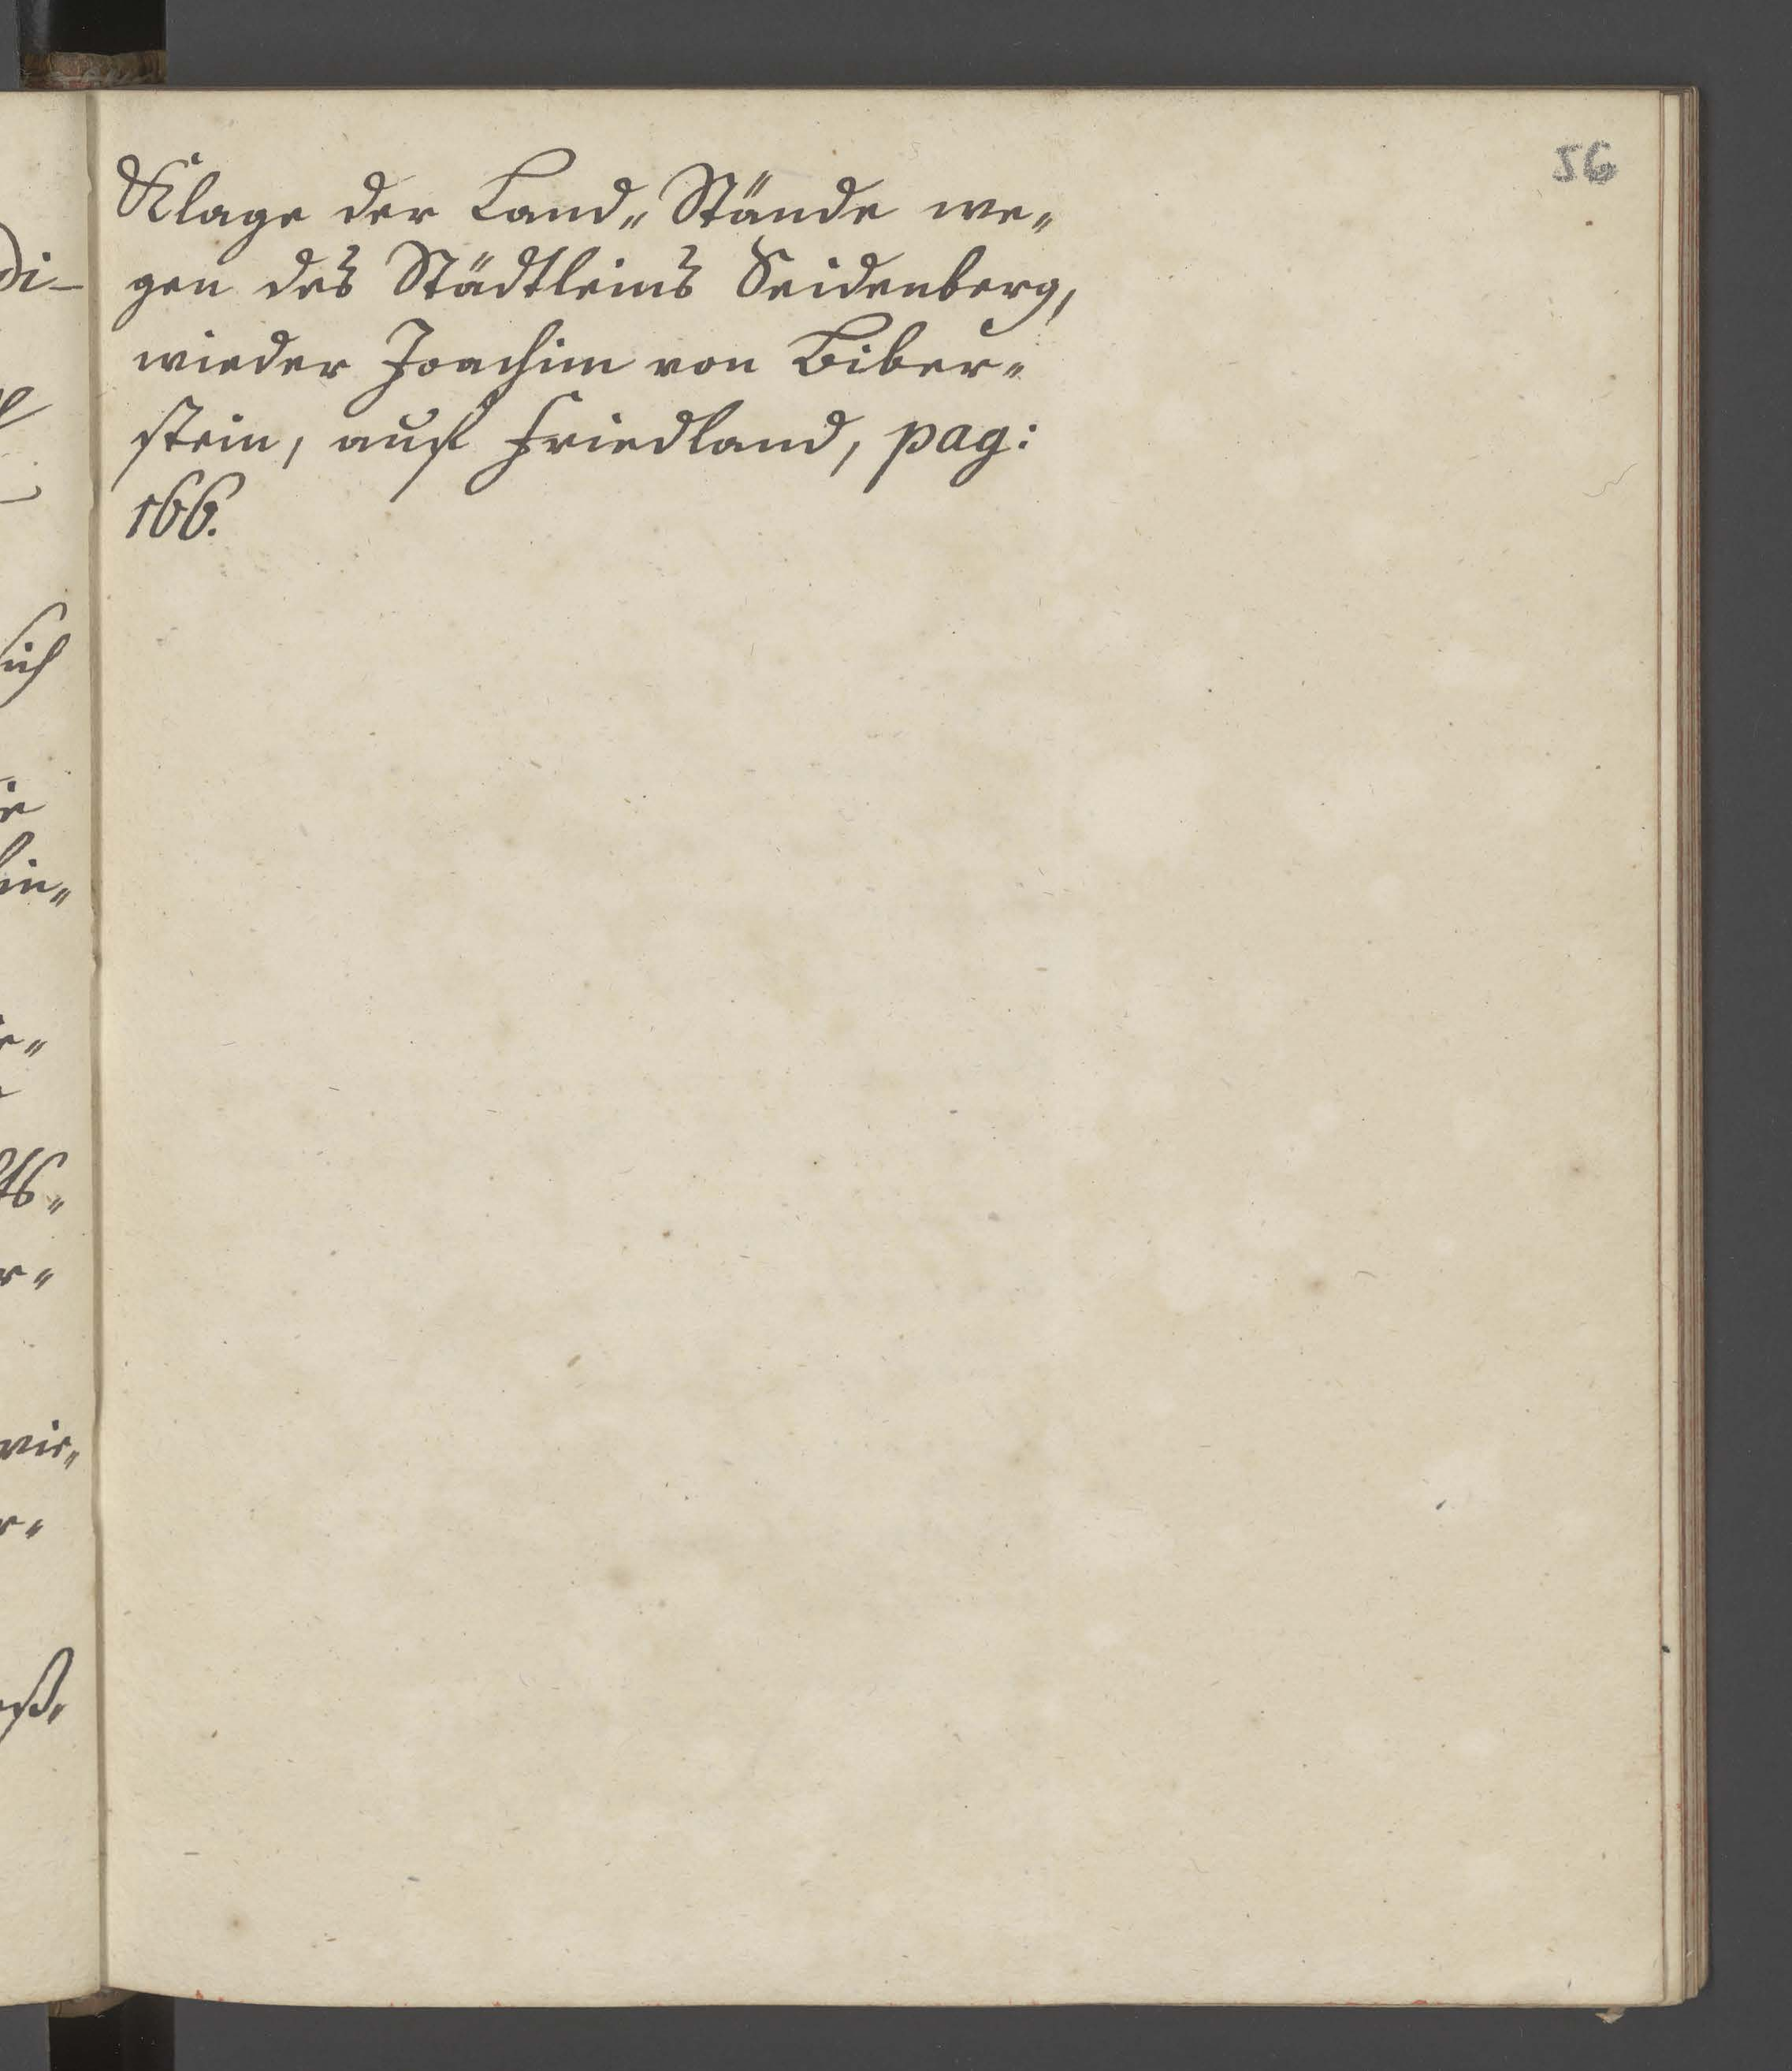 56
Klage der Land„ Stände we„
gen des Städtleins Seidenberg,
wieder Joachim von Biber„
stein, auf Friedland, pag:
166.